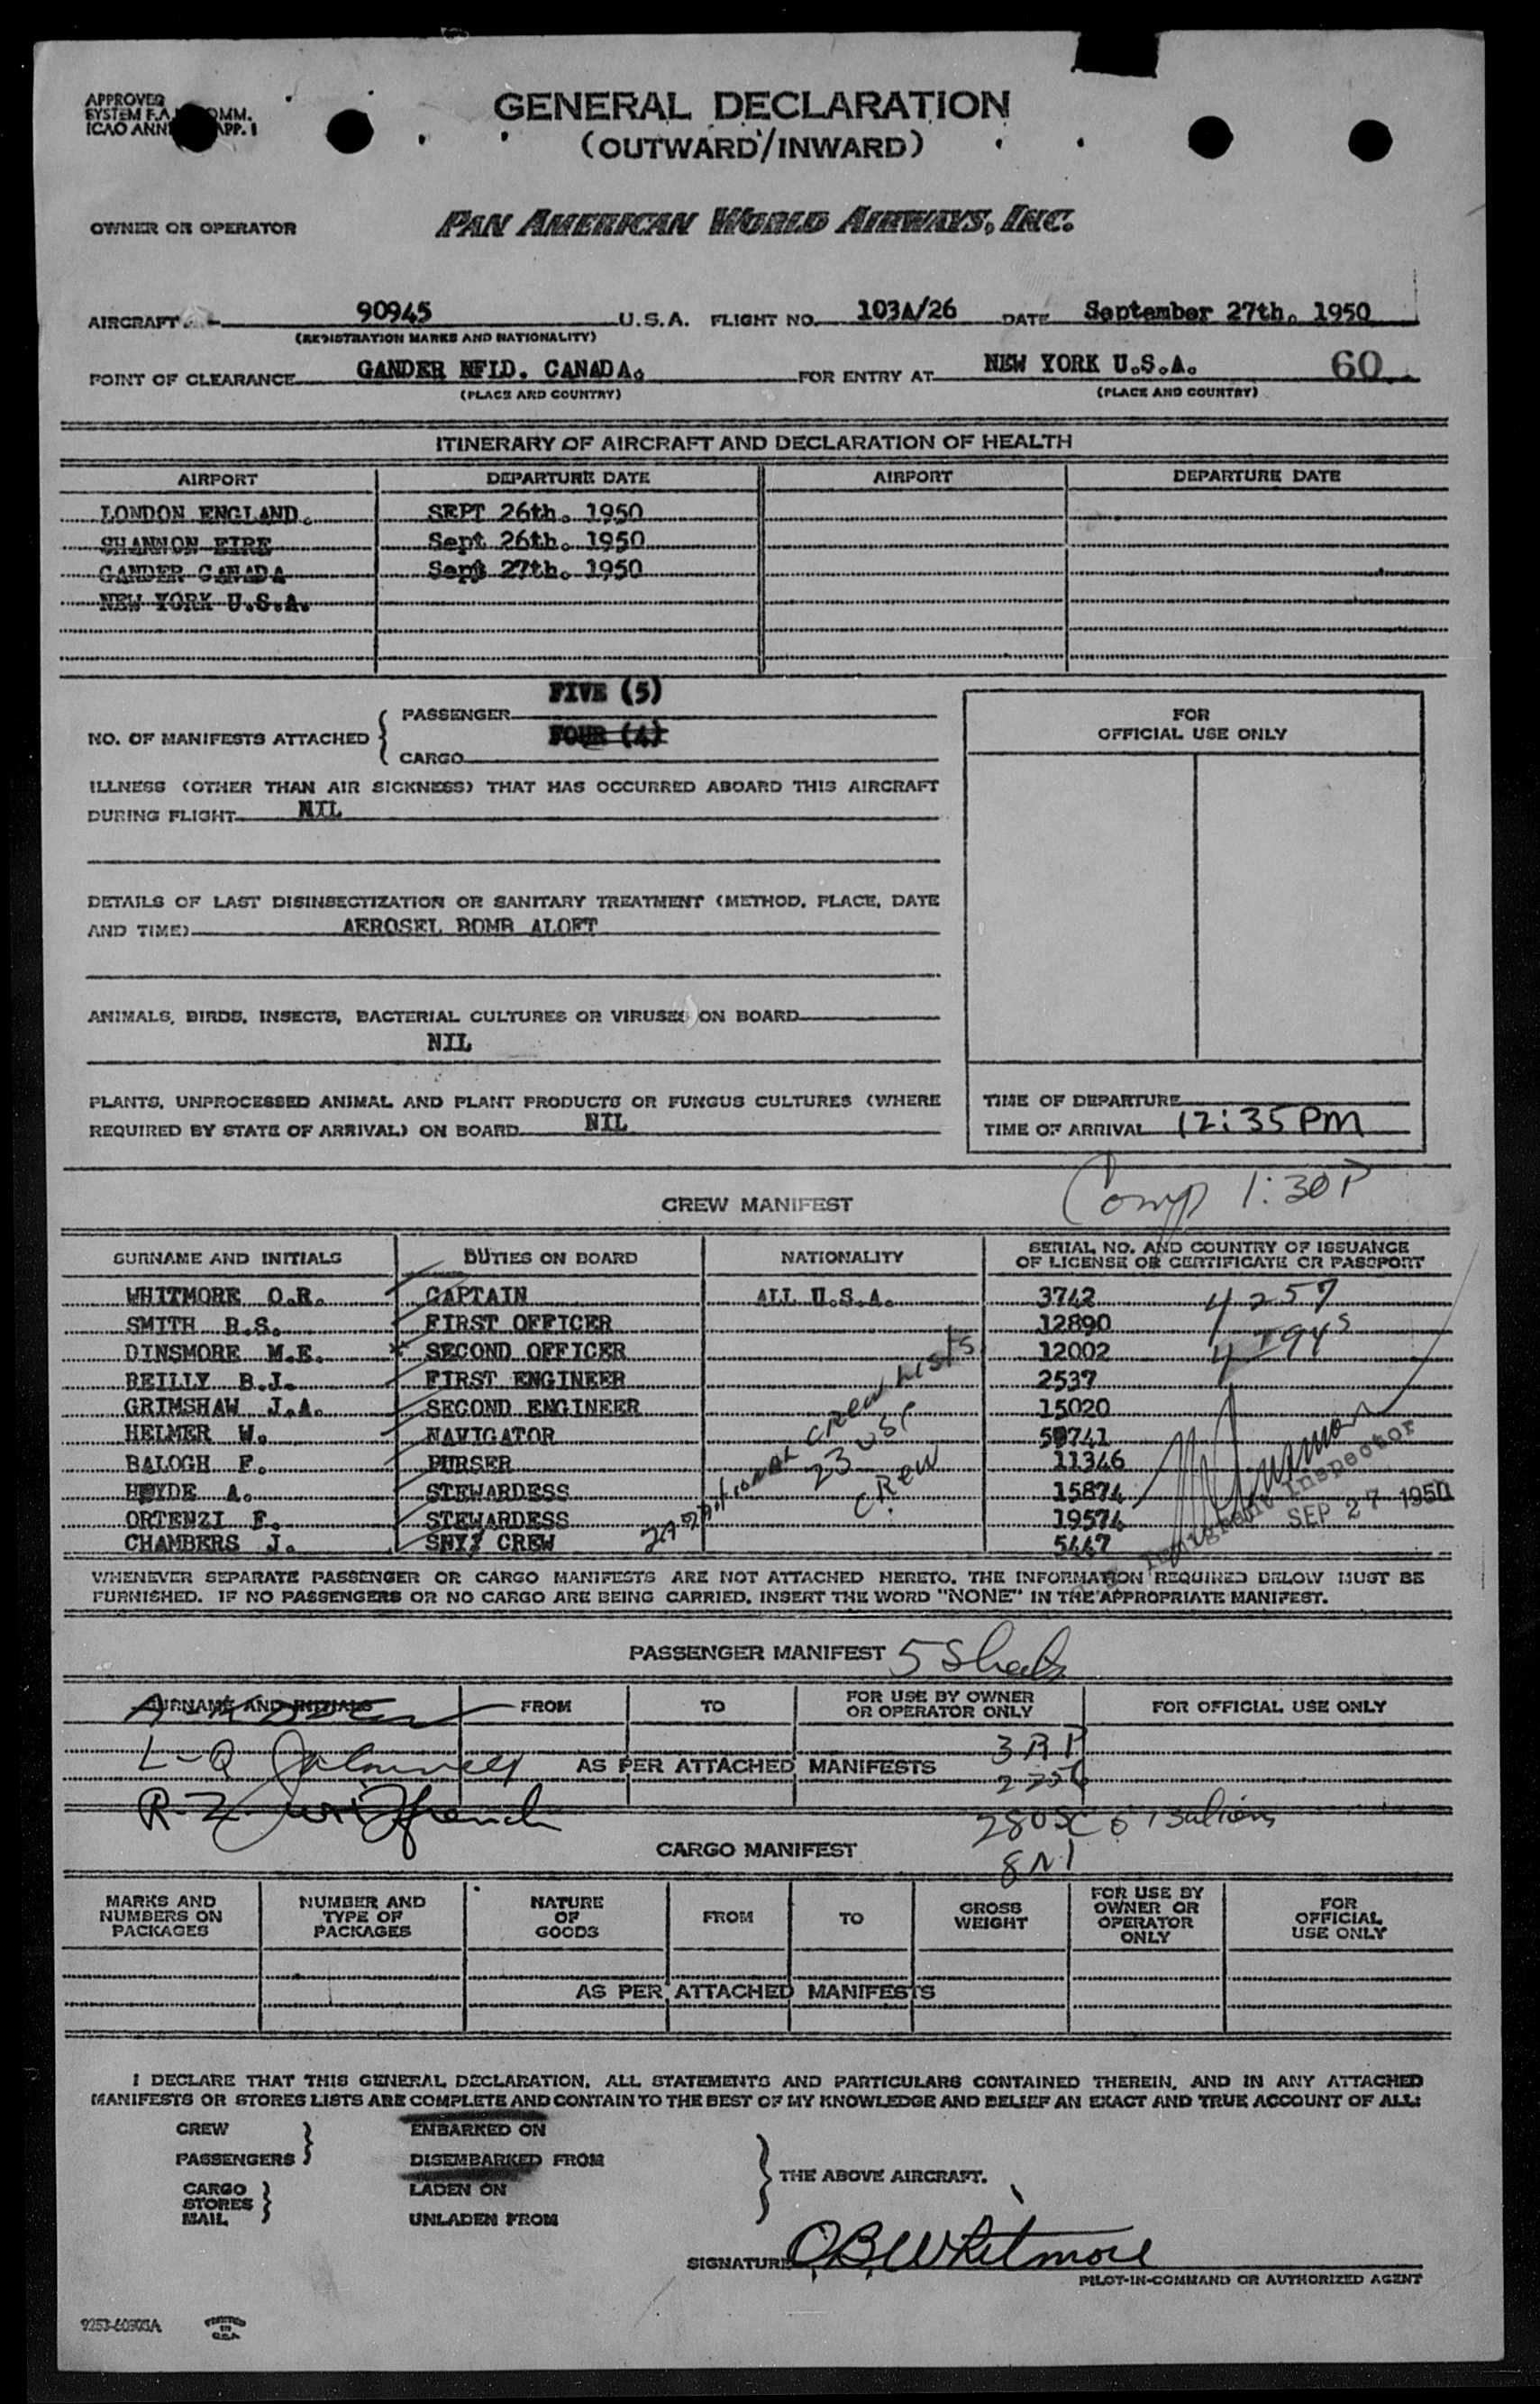 APPROVED
SYSTEM F.A. COMM.
ICAO ANN APP. 1
GENERAL DECLARATION
(OUTWARD/INWARD)
OWNER OR OPERATOR PAN AMERICAN WORLD AIRWAYS, INC.
AIRCRAFT 90945 U.S.A. FLIGHT NO. 103A/26 DATE September 27th. 1950
(REGISTRATION MARKS AND NATIONALITY)
POINT OF CLEARANCE GANDER NFLD. CANADA. FOR ENTRY AT NEW YORK U.S.A. 60
(PLACE AND COUNTRY) (PLACE AND COUNTRY)
ITINERARY OF AIRCRAFT AND DECLARATION OF HEALTH
AIRPORT DEPARTURE DATE AIRPORT DEPARTURE DATE
LONDON ENGLAND. SEPT 26th. 1950
SHANNON EIRE Sept 26th. 1950
GANDER CANADA Sept 27th. 1950
NEW YORK U.S.A.
FIVE (5)
PASSENGER
NO. OF MANIFESTS ATTACHED
FOUR (4)
CARGO
FOR
OFFICIAL USE ONLY
ILLNESS (OTHER THAN AIR SICKNESS) THAT HAS OCCURRED ABOARD THIS AIRCRAFT
DURING FLIGHT NIL
DETAILS OF LAST DISINSECTIZATION OR SANITARY TREATMENT (METHOD, PLACE, DATE
AND TIME) AEROSEL BOMB ALOFT
ANIMALS, BIRDS, INSECTS, BACTERIAL CULTURES OR VIRUSES ON BOARD
NIL
PLANTS, UNPROCESSED ANIMAL AND PLANT PRODUCTS OR FUNGUS CULTURES (WHERE
REQUIRED BY STATE OF ARRIVAL) ON BOARD NIL
TIME OF DEPARTURE
TIME OF ARRIVAL 12:35 PM
Comp 1:30 P
CREW MANIFEST
SURNAME AND INITIALS DUTIES ON BOARD NATIONALITY SERIAL NO. AND COUNTRY OF ISSUANCE
OF LICENSE OR CERTIFICATE OR PASSPORT
WHITMORE O.R. CAPTAIN ALL U.S.A. 3742 4257
SMITH R.S. FIRST OFFICER 12890
DINSMORE M.E. SECOND OFFICER 12002
REILLY B.J. FIRST ENGINEER 2537
GRIMSHAW J.A. SECOND ENGINEER 15020
HELMER W. NAVIGATOR 50741
BALOGH F. PURSER 11346
HEYDE A. STEWARDESS 15874
ORTENZI F. STEWARDESS 19574
CHAMBERS J. CREW 5447
crew lists
23 USC
crew
Immigrant Inspector
SEP 27 1950
WHENEVER SEPARATE PASSENGER OR CARGO MANIFESTS ARE NOT ATTACHED HERETO, THE INFORMATION REQUIRED BELOW MUST BE
FURNISHED. IF NO PASSENGERS OR NO CARGO ARE BEING CARRIED, INSERT THE WORD "NONE" IN THE APPROPRIATE MANIFEST.
PASSENGER MANIFEST 5 Sheets
SURNAME AND INITIALS FROM TO FOR USE BY OWNER
OR OPERATOR ONLY FOR OFFICIAL USE ONLY
3 RP
AS PER ATTACHED MANIFESTS
28 USC
8 NI
CARGO MANIFEST
MARKS AND
NUMBERS ON
PACKAGES
NUMBER AND
TYPE OF
PACKAGES
NATURE
OF
GOODS
FROM
TO
GROSS
WEIGHT
FOR USE BY
OWNER OR
OPERATOR
ONLY
FOR
OFFICIAL
USE ONLY
AS PER ATTACHED MANIFESTS
I DECLARE THAT THIS GENERAL DECLARATION, ALL STATEMENTS AND PARTICULARS CONTAINED THEREIN, AND IN ANY ATTACHED
MANIFESTS OR STORES LISTS ARE COMPLETE AND CONTAIN TO THE BEST OF MY KNOWLEDGE AND BELIEF AN EXACT AND TRUE ACCOUNT OF ALL:
CREW EMBARKED ON
PASSENGERS DISEMBARKED FROM
THE ABOVE AIRCRAFT.
CARGO LADEN ON
STORES
MAIL UNLADEN FROM
SIGNATURE OBWhitmore
PILOT-IN-COMMAND OR AUTHORIZED AGENT
PRINTED
IN
U.S.A.